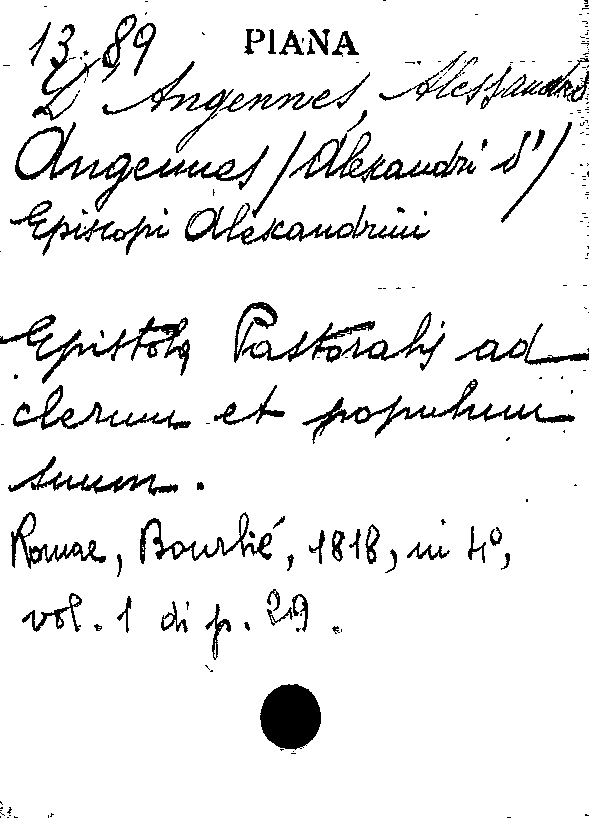 13.89 PIANA
D'Angennes, Alessandro
Angennes (Alexandri d')
Episcopi Alexandrini
Epistola Pastoralis ad
clerum et populum
suum.
Romae, Bourlié, 1818, in 4°,
vol. 1 di p. 29.